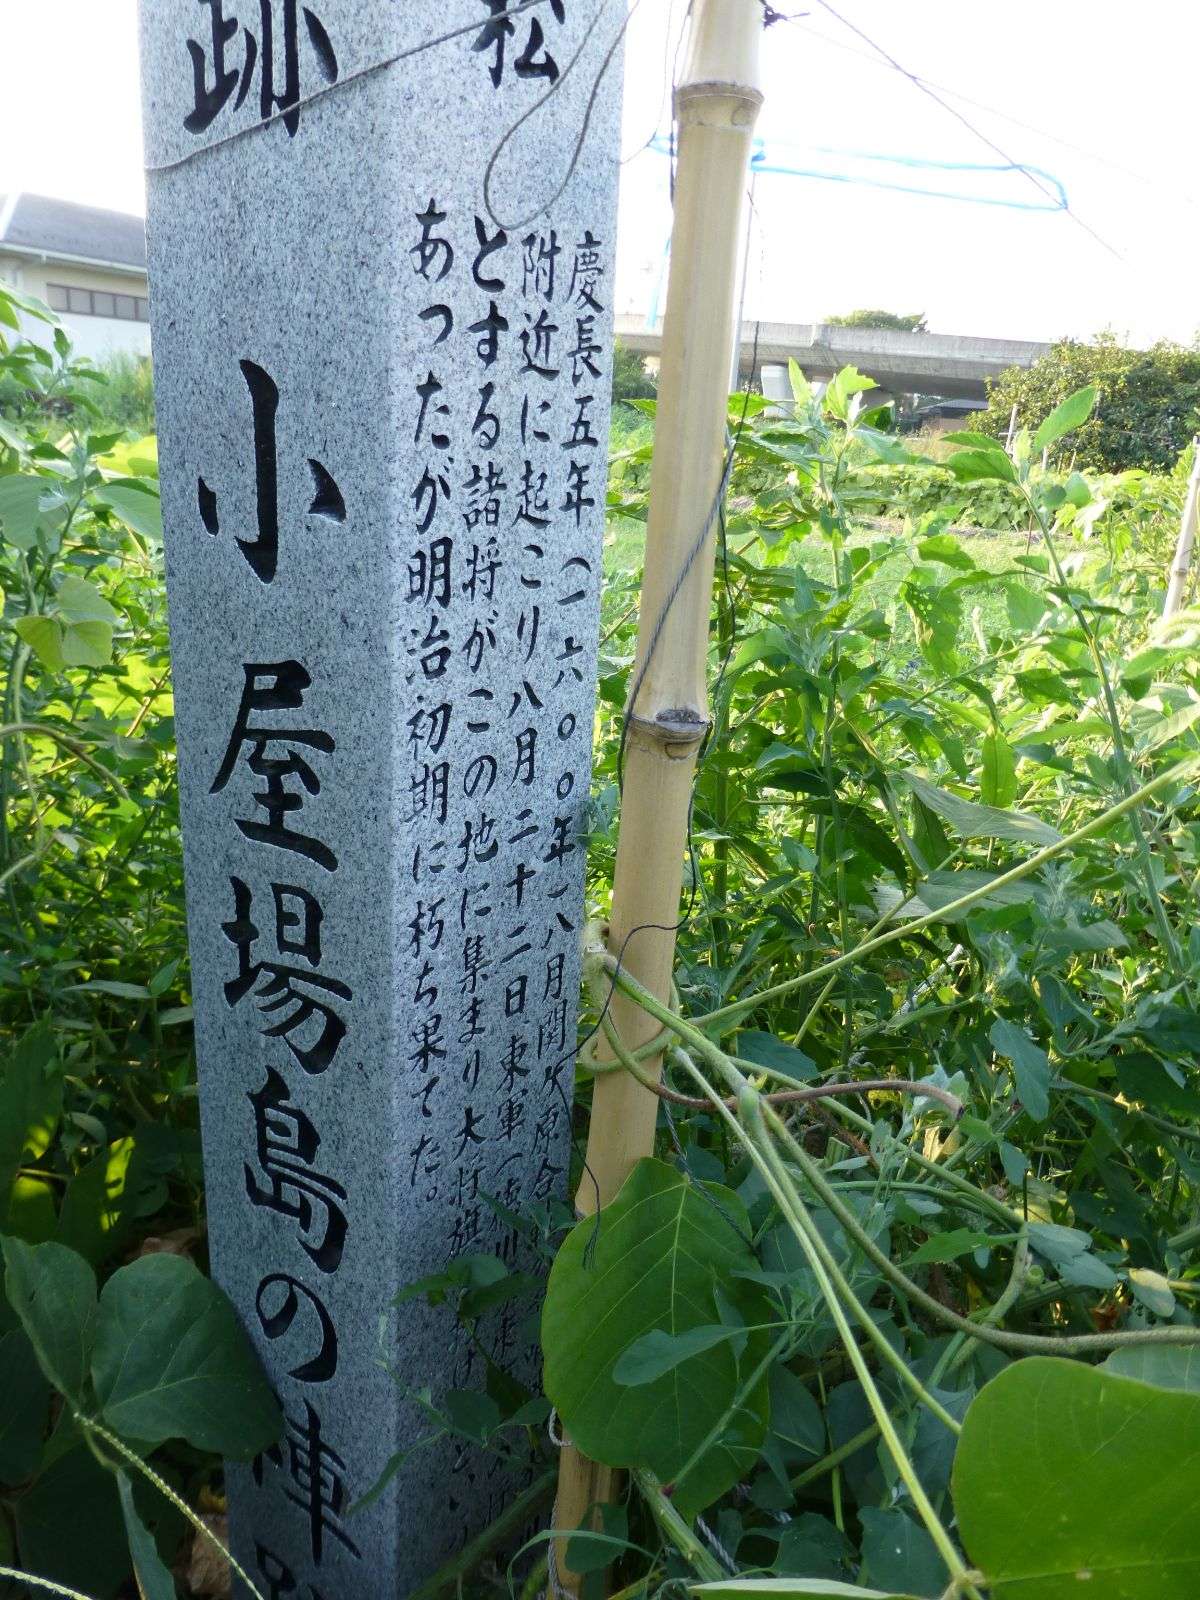 跡 小屋場島の陣
松
慶長五年(一六〇〇年)八月関ケ原合
附近に起こり八月二十二日東軍(
とする諸将がこの地に集まり大将旗
あったが明治初期に朽ち果てた。